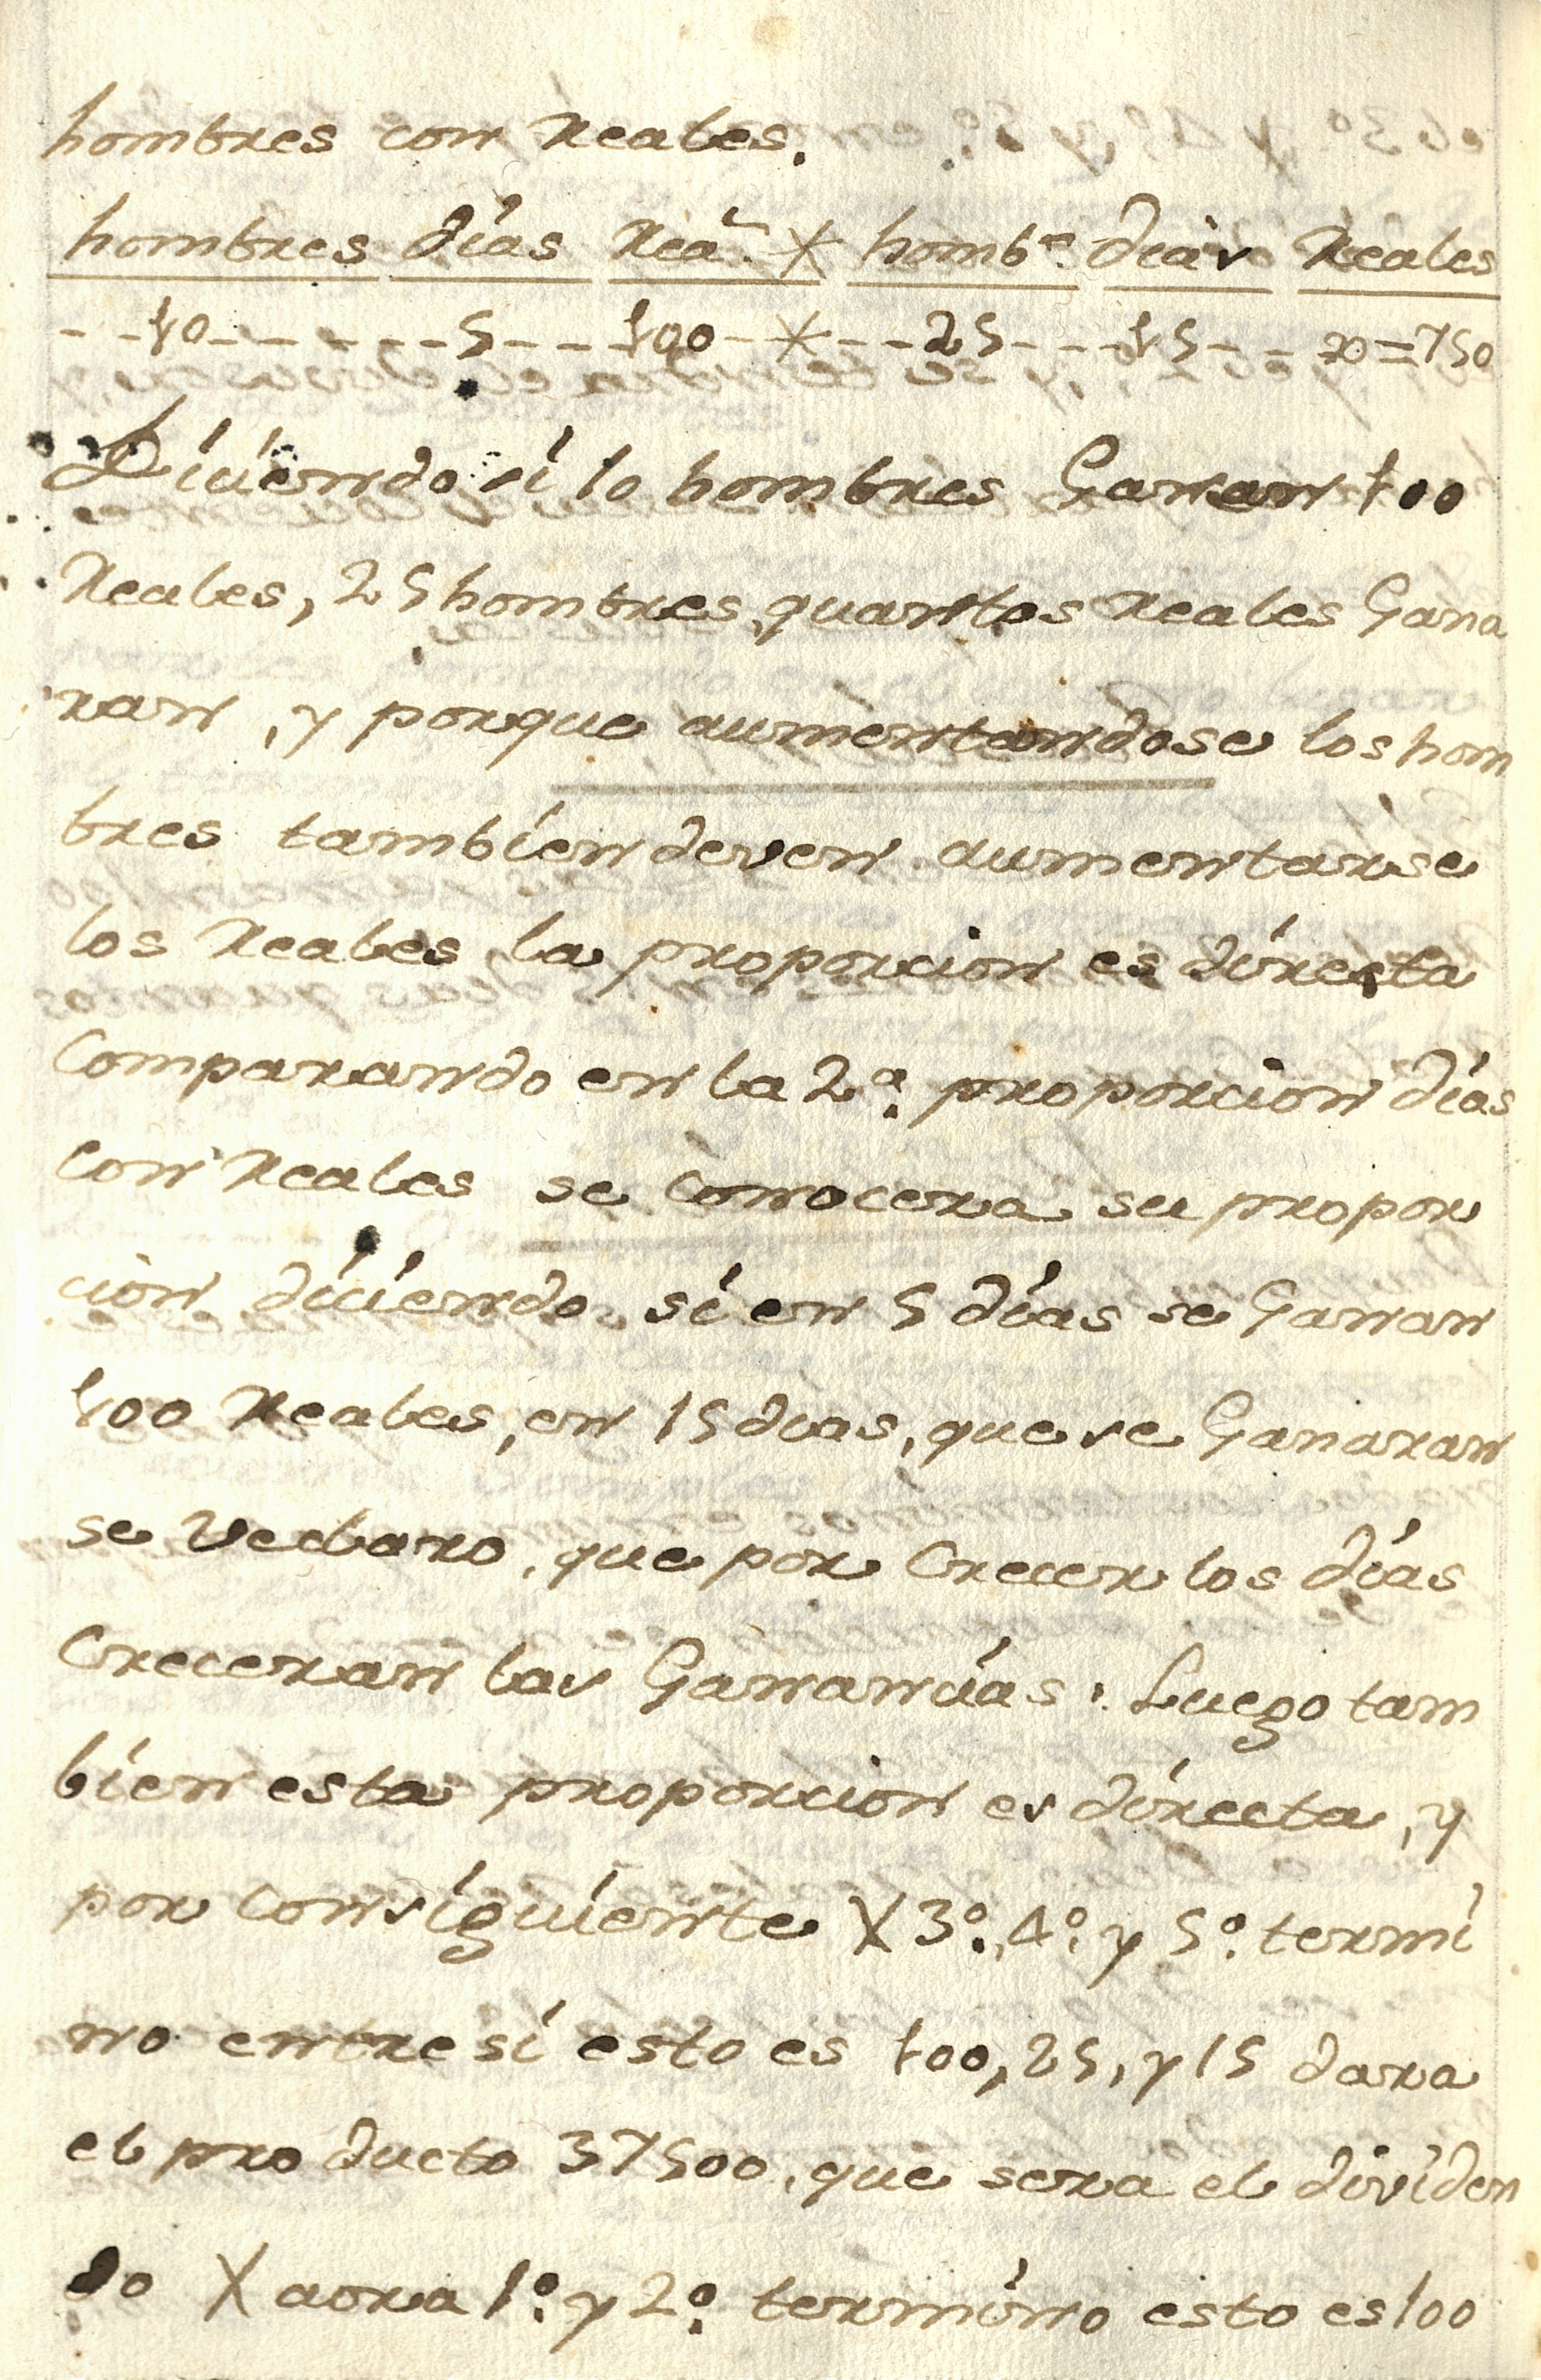 hombres con Reales.
hombres días Rea.s X homb.s dias Reales
- - 10 - - - - - - 5 - - - 100 - X - - - 25 - - - 15 - - x = 750
Diciendo si 10 hombres Ganan 100
Reales, 25 hombres quantos Reales Gana
ran, y porque aumentandose los hom
bres tambien deven aumentarse
los Reales la proporcion es directa
Comparando en la 2ª. proporcion días
con Reales se conocera su propor
cion diciendo si en 5 días se Ganan
100 Reales, en 15 dias, que se Ganaran
se ve claro, que por Crecer los días
Creceran las Ganancias: Luego tam
bien esta proporcion es directa, y
por consiguiente X 3º. 4º. y 5º. termi
no entre si esto es 100, 25, y 15 dara
el producto 37500, que sera el dividen
do X aora 1º. y 2º. termino esto es 100